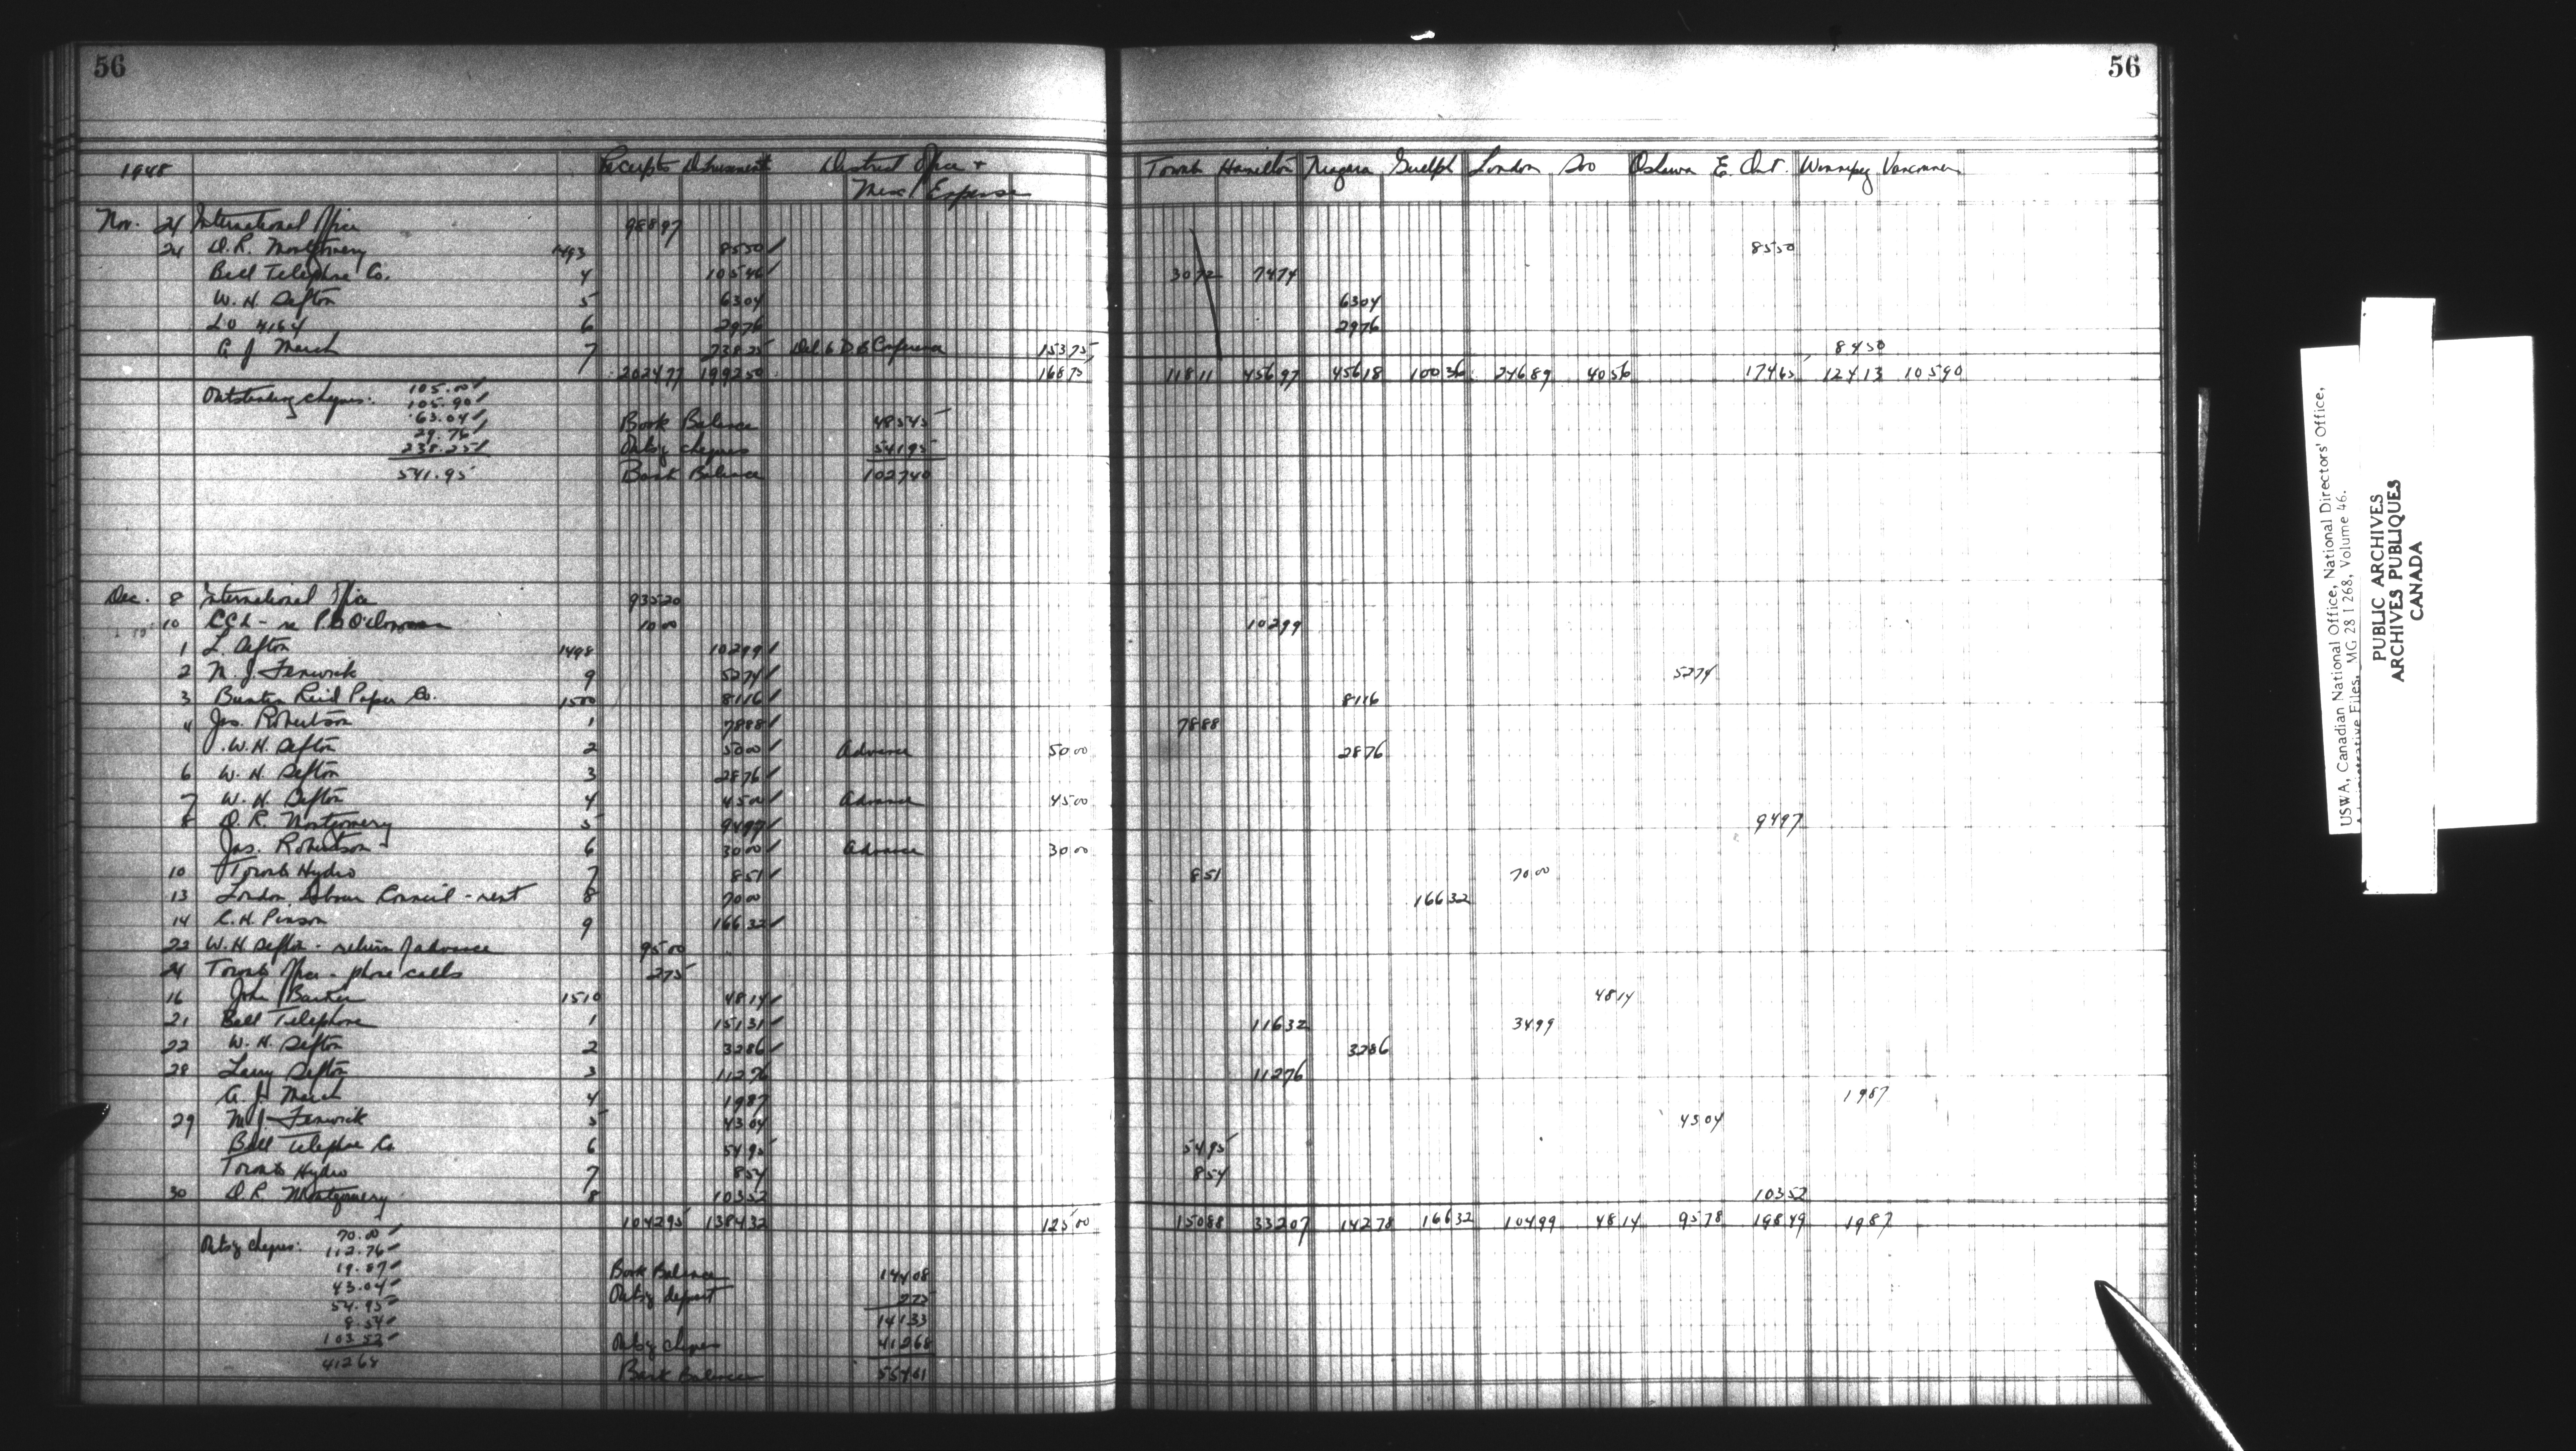 56
1948 Receipts Disbursement District Office +
Misc / Expense
Nov. 24 International Office 988 97
24 D.R. Montgomery 1493 85 50
Bell Telephone Co. 4 105 46
W. H. Sefton 5 63 04
LU 4164 6 29 76
A J March 7 238 25 Del to D 6 Conference 153 75
2024 77 1992 50 168 75
Outstanding cheques: 105.00
105.90
63.04
29.76
238.25
541.95
Book Balance 485 45
Outsg cheques 541 95
Bank Balance 1027 40
Dec. 8 International Office 935 20
10 CCL - re 10 00
1 L. Sefton 1498 102 99
2 M. J. Fenwick 9 52 74
3 Buntin Reid Paper Co. 1500 81 16
4 Jas. Robertson 1 78 88
W. H. Sefton 2 50 00 Advance 50 00
6 W. H. Sefton 3 28 76
7 W. H. Sefton 4 45 00 Advance 45 00
8 D. R. Montgomery 5 94 97
Jas. Robertson 6 30 00 Advance 30 00
10 Toronto Hydro 7 8 51
13 London Labour Council - rent 8 70 00
14 C. H. Pinson 9 166 32
22 W. H Sefton - return of advance 95 00
24 Toronto Office - phone calls 2 75
16 John Barker 1510 48 14
21 Bell Telephone 1 151 31
22 W. H. Sefton 2 32 86
28 Larry Sefton 3 112 76
A. J. March 4 19 87
29 M J. Fenwick 5 43 04
Bell Telephone Co 6 54 95
Toronto Hydro 7 8 54
30 D. R. Montgomery 8 103 52
1042 95 1384 32 125 00
Outsg cheques: 70.00
112.76
19.87
43.04
54.95
8.54
103 52
412 68
Book Balance 144 08
Outsg deposit 2 75
141 33
Outsg cheques 412 68
Bank Balance 554 01
56
Toronto Hamilton Niagara Guelph London Soo Oshawa E. Ont. Winnipeg Vancouver
85 50
30 72 74 74
63 04
29 76
84 50
118 11 456 97 456 18 100 36 246 89 40 56 174 65 124 13 105 90
102 99
52 74
81 16
78 88
28 76
94 97
8 51 70 00
166 32
48 14
116 32 34 99
32 86
112 76
19 87
43 04
54 95
8 54
103 52
150 88 332 07 142 78 166 32 104 99 48 14 95 78 198 49 19 87
USWA, Canadian National Office, National Directors' Office,
Administrative Files, MG 28 I 268, Volume 46.
PUBLIC ARCHIVES
ARCHIVES PUBLIQUES
CANADA